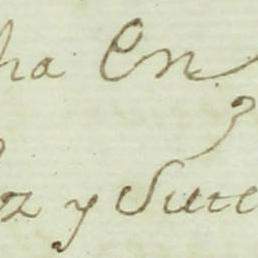 ha En
z y Sute